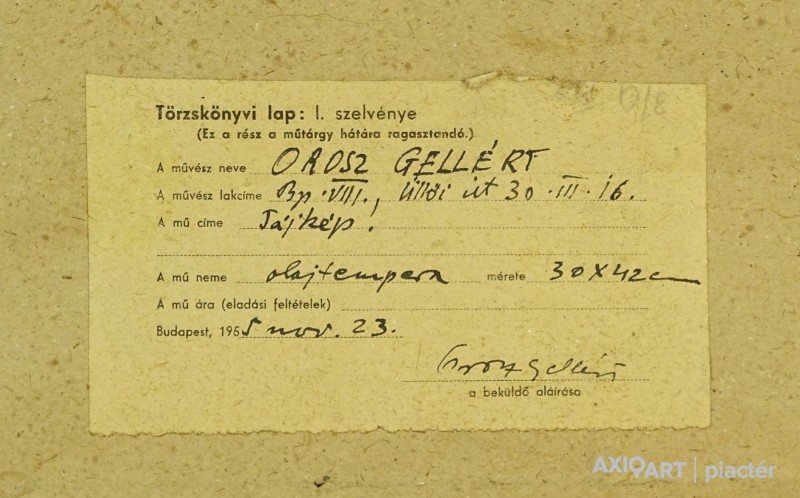 Q/8
Törzskönyvi lap: I. szelvénye
(Ez a rész a műtárgy hátára ragasztandó.)
A művész neve OROSZ GELLÉRT
A művész lakcíme Bp. VIII., Üllői út 30. III. 16.
A mű címe Tájkép.
A mű neme olajtempera mérete 30X42 cm
A mű ára (eladási feltételek)
Budapest, 1955 nov. 23.
Orosz Gellért
a beküldő aláírása
AXIOART | piactér